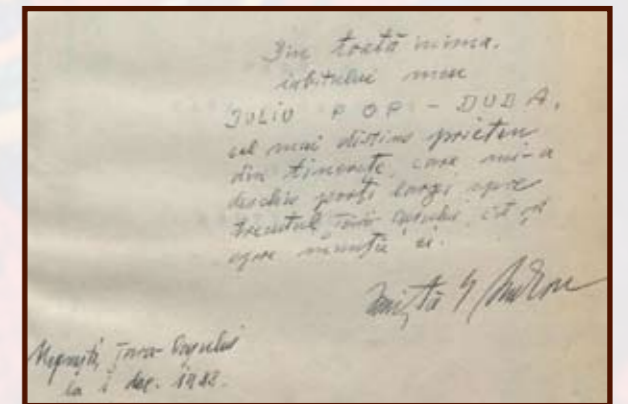 Din toată inima,
iubitului meu
IULIU POP-DUDA,
cel mai distins prieten
din tinerețe, care mi-a
deschis porți largi spre
trecutul Țării Oașului, cît și
spre ei.
Negrești, Țara Oașului
la 1 dec. 1982.